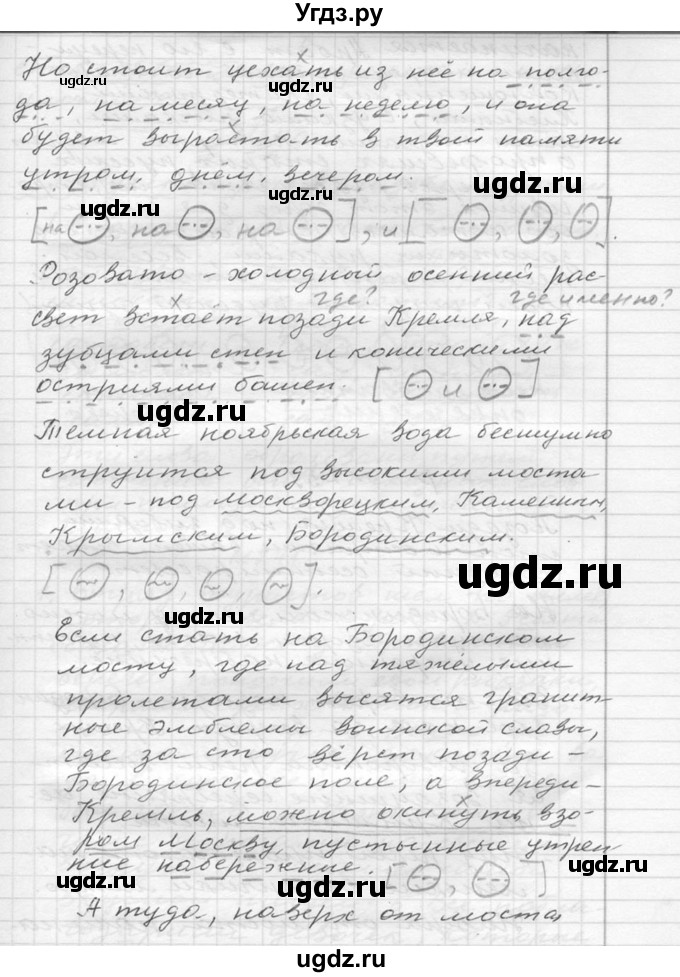 Угдз.ру
Но стоит уехать из неё на полго-
да, на месяц, на неделю, и она
будет вырастать в твоей памяти
утром, днём, вечером.
ugdz.ru ugdz.ru
[на, на, на], и [ , , ].
ugdz.ru
Розовато-холодный осенний рас-
где? где именно?
свет встаёт позади Кремля, над
зубцами стен и коническими
ugdz.ru
остриями башен. [ и ]
ugdz.ru
Темная ноябрьская вода бесшумно
струится под высокими моста-
ми – под Москворецким, Каменным,
ugdz.ru
Крымским, Бородинским.
ugdz.ru
[ , , , ].
ugdz.ru
Если стать на Бородинском
мосту, где над тяжёлыми
пролетами высятся гранит-
ные эмблемы воинской славы,
где за сто вёрст позади –
ugdz.ru
Бородинское поле, а впереди –
Кремль, можно окинуть взо-
ром Москву, пустынные утрен-
ние набережные. [ , ]
ugdz.ru ugdz.ru
А туда, наверх от моста,
ugdz.ru